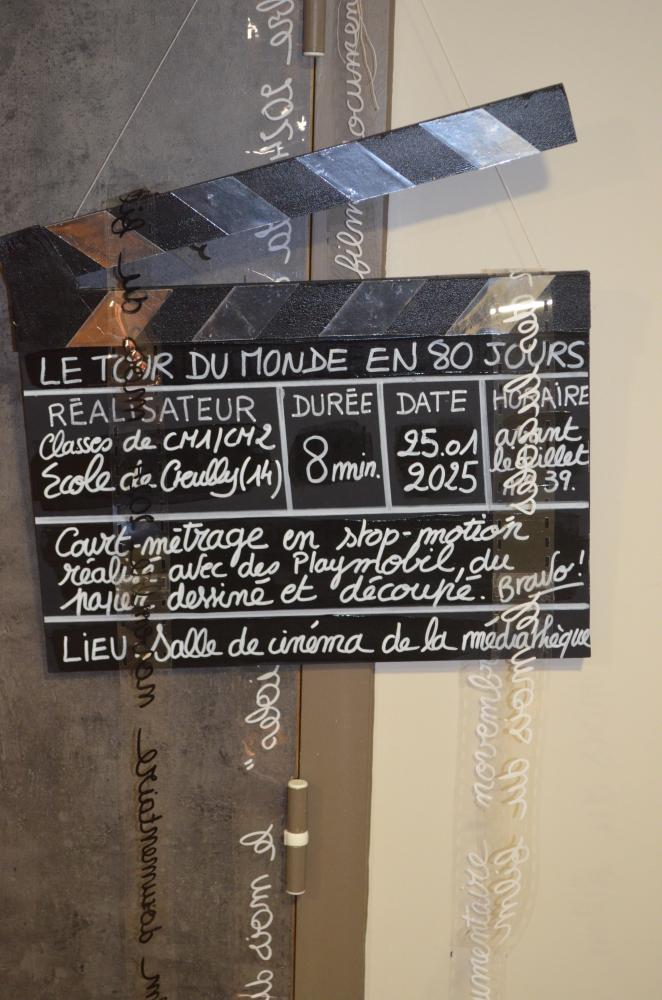 LE TOUR DU MONDE EN 80 JOURS
RÉALISATEUR
Classes de CM1/CM2
École de Creully (14)
DURÉE
8 min.
DATE
25.01
2025
HORAIRE
avant
le billet
Court-métrage en stop-motion
réalisé avec des Playmobil, du
papier dessiné et découpé. Bravo!
LIEU Salle de cinéma de la médiathèque
le mois du film
novembre
umentaire
film documen
bre 2024
le mois d